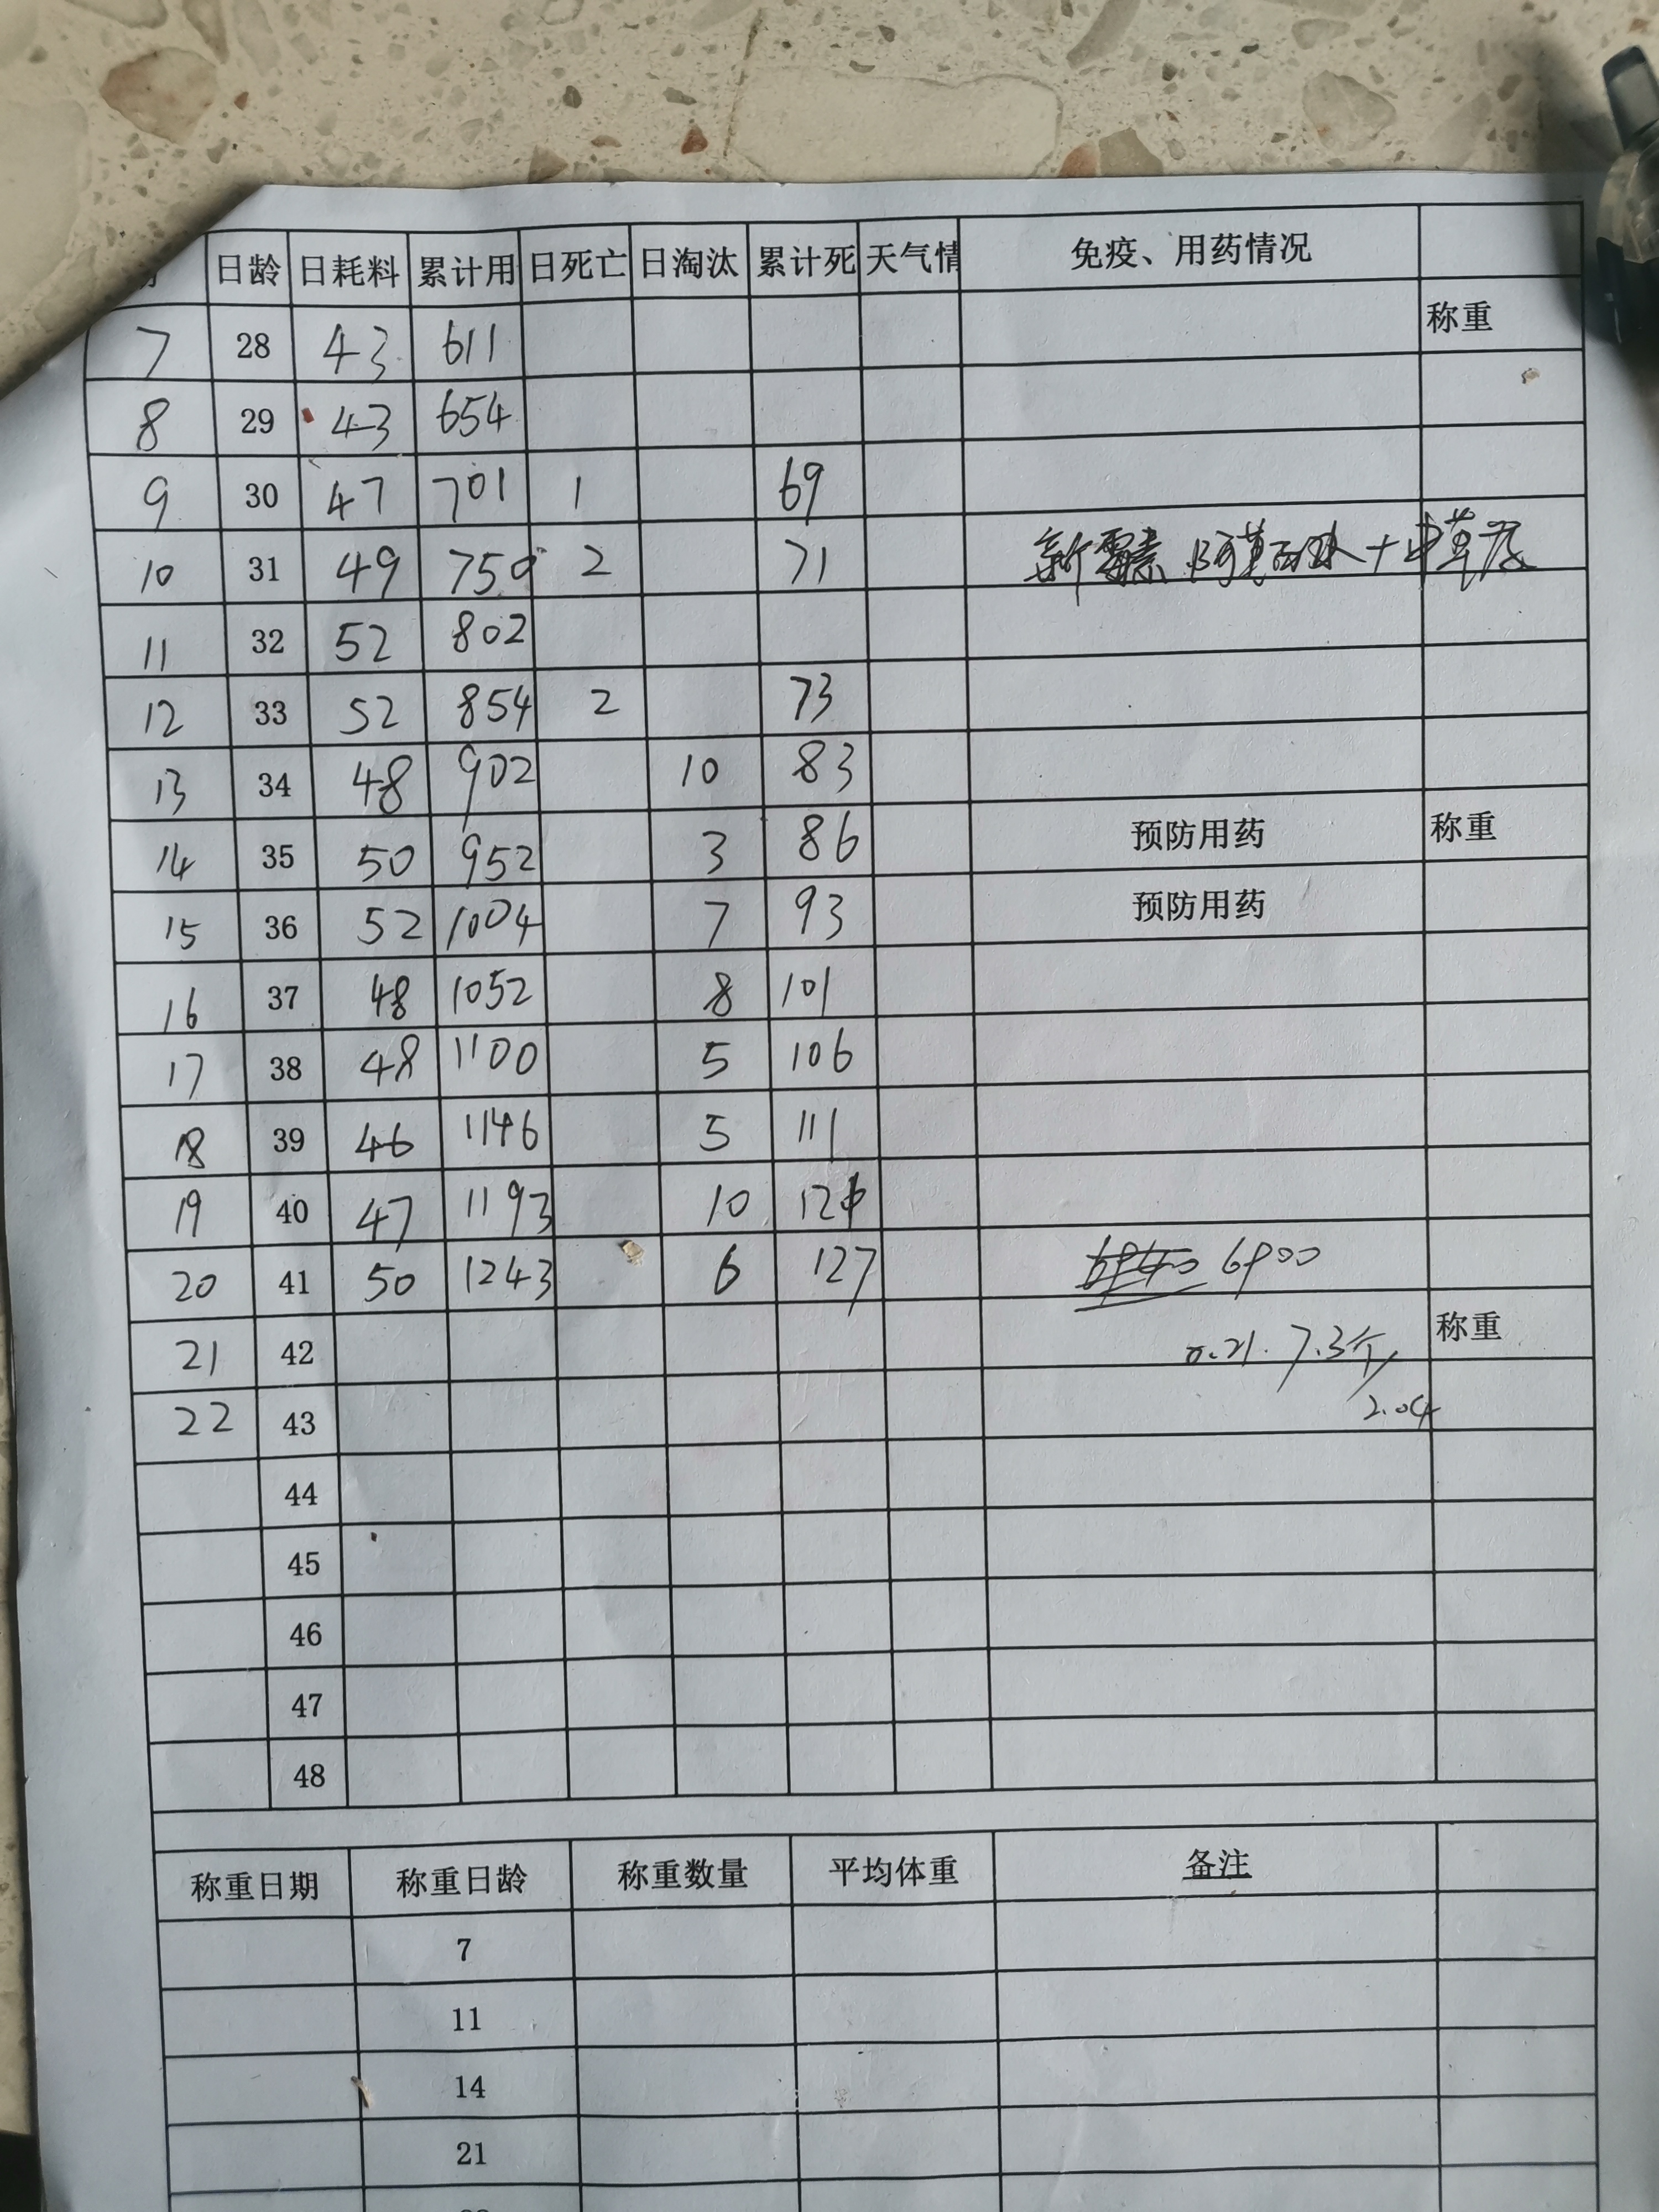 期 日龄 日耗料 累计用 日死亡 日淘汰 累计死 天气情 免疫、用药情况
7 28 43 611 称重
8 29 43 654
9 30 47 701 1 69
10 31 49 750 2 71 新霉素 阿莫西林+中草药
11 32 52 802
12 33 52 854 2 73
13 34 48 902 10 83
14 35 50 952 3 86 预防用药 称重
15 36 52 1004 7 93 预防用药
16 37 48 1052 8 101
17 38 48 1100 5 106
18 39 46 1146 5 111
19 40 47 1193 10 121
20 41 50 1243 6 127 6900
21 42 7.3个 称重
22 43 2.04
44
45
46
47
48
称重日期 称重日龄 称重数量 平均体重 备注
7
11
14
21